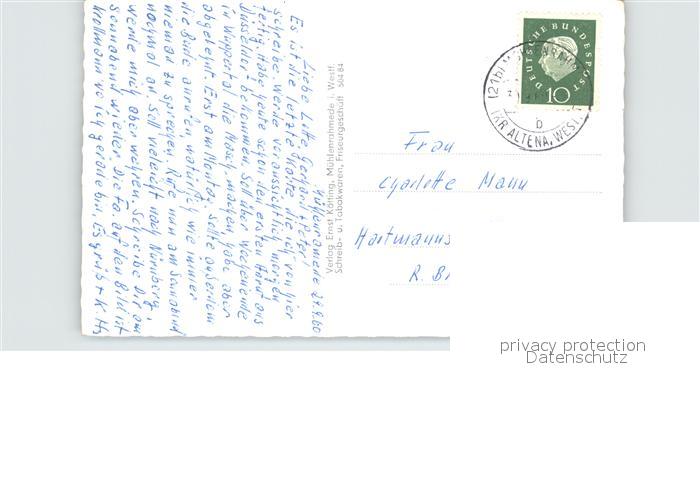 Mühlenrahmede 29.9.60
Liebe Lotte, Gerhard + Peter!
Es ist die letzte Karte die ich von hier
schreibe. Werde voraussichtlich morgen
fertig. Habe heute schon den ersten Anruf aus
Düsseldorf bekommen. Soll über Wochenende
in Wuppertal die Masch. machen, habe aber
abgelehnt. Erst am Montag. Sollte außerdem
die Bude anrufen, natürlich wie immer
niemand zu sprechen. Rufe nun am Sonnabend
nochmal an. Soll vielleicht nach Nürnberg,
werde mich aber wehren. Schreibe Dir am
Sonnabend wieder. Die Fa. auf dem Bild ist
wo ich gearbeitet bin. Es grüßt
Verlag Ernst Kötting, Mühlenrahmede i. Westf.
Schreib- u. Tabakwaren, Friseurgeschäft 504 84
DEUTSCHE BUNDESPOST
10
(21b) MÜHLENRAHMEDE
b
(KR ALTENA, WESTF.)
Frau
Charlotte Mann
Hartmanns
R. Br
privacy protection
Datenschutz